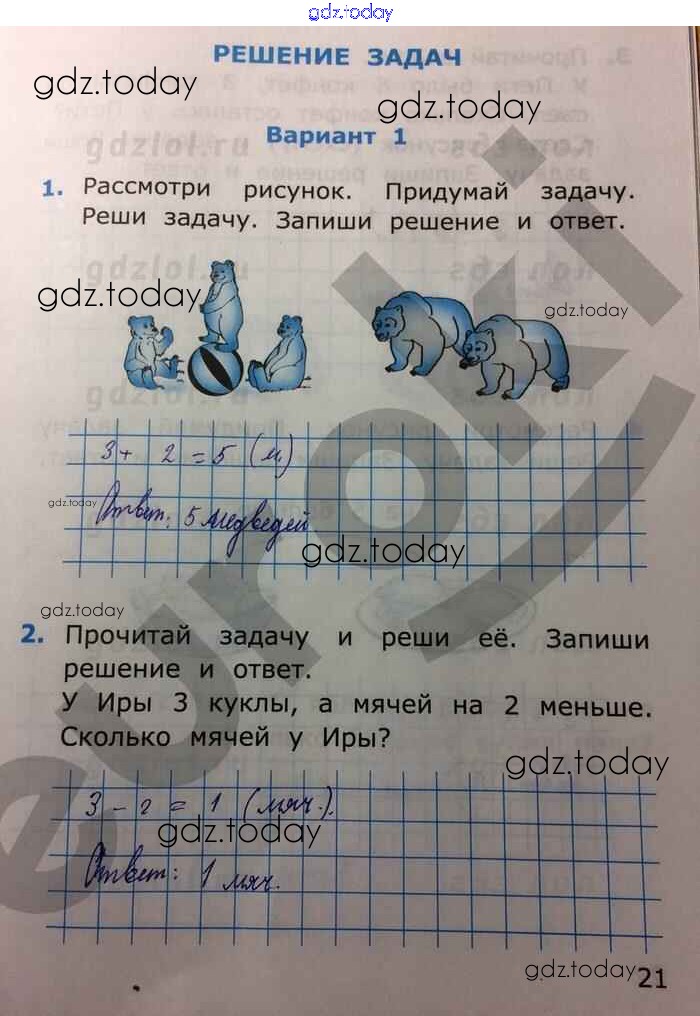 gdz.today
РЕШЕНИЕ ЗАДАЧ
gdz.today
gdz.today
Вариант 1
gdzlol.ru
1. Рассмотри рисунок. Придумай задачу.
Реши задачу. Запиши решение и ответ.
gdz.today
gdz.today
3 + 2 = 5 (м)
gdz.today
Ответ: 5 медведей.
gdz.today
gdz.today
2. Прочитай задачу и реши её. Запиши
решение и ответ.
У Иры 3 куклы, а мячей на 2 меньше.
Сколько мячей у Иры?
gdz.today
3 - 2 = 1 (мяч.).
gdz.today
Ответ: 1 мяч.
gdz.today
21
euroki